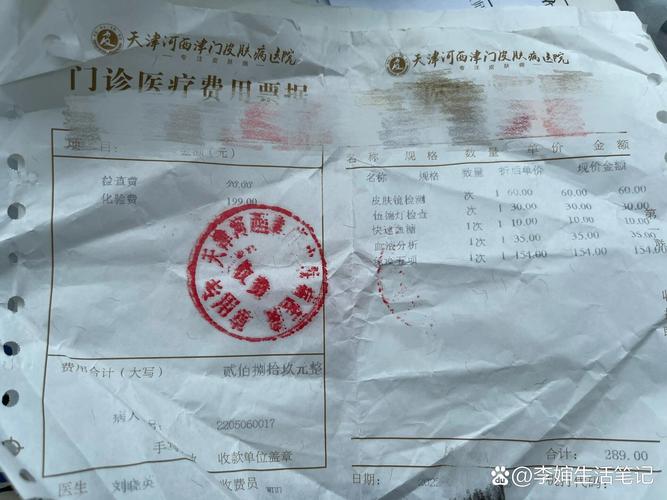 天津河西津门皮肤病医院
专注皮肤病
门诊医疗费用票据
项目: 金额(元)
检查费 90.00
化验费 199.00
天津河西津
收费
专用章
费用合计(大写) 贰佰捌拾玖元整
病人
号: 2205060017
手写 收款单位盖章
医生 刘晓英 收费员 wnn
天津河西津门皮肤病医院
专注皮肤病
名称 规格 数量 单价 金额
名称 规格 数量 折后单价 现价金额
皮肤镜检测 次 1 60.00 60.00 60.00
伍德灯检查 次 1 30.00 30.00 30.00
快速血糖 1次 1 10.00 10.00 10.00
血液分析 1次 1 35.00 35.00 35.00
五项 1次 1 154.00 154.00 154.00
第
联
收据
合计: 289.00
日期: 2022
百家号/李婶生活笔记